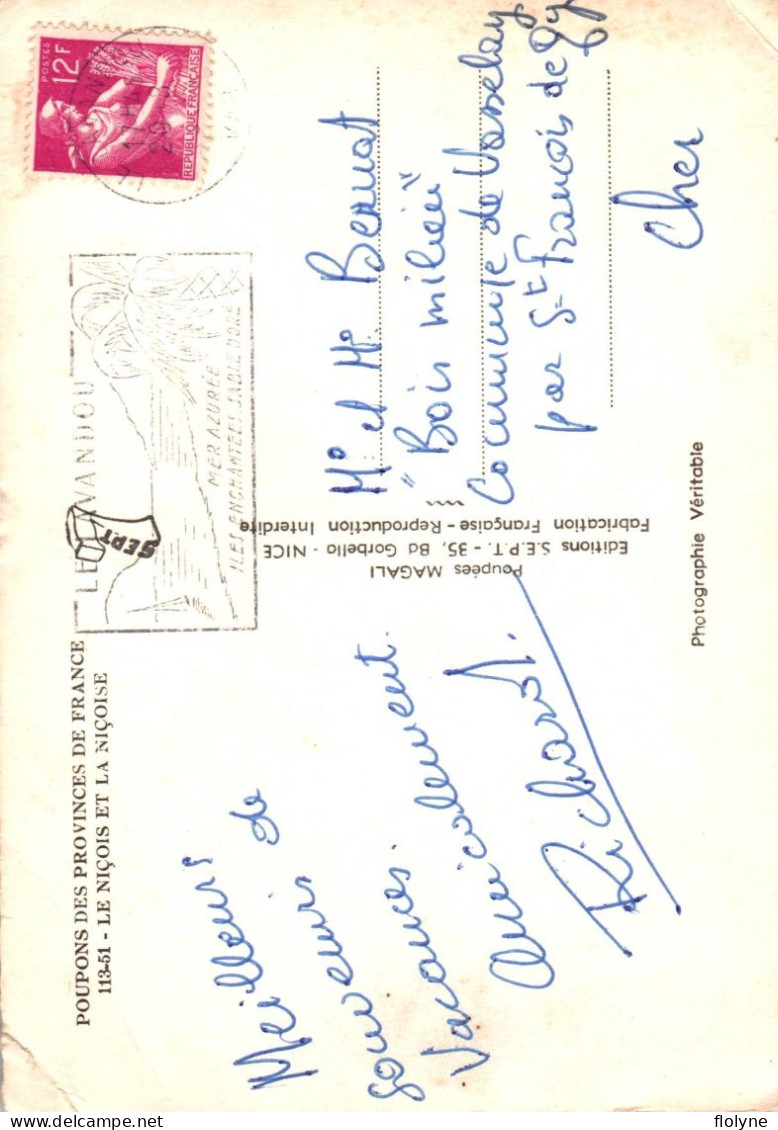 POUPONS DES PROVINCES DE FRANCE
113-51 - LE NIÇOIS ET LA NIÇOISE
Meilleurs
souvenirs de
Vacances.
Amicalement.
Richard.
SEPT
Poupées MAGALI
Editions S.E.P.T. - 35, Bd Gorbella - NICE
Fabrication Française - Reproduction Interdite
Photographie Véritable
LE LAVANDOU
MER AZURÉE
ILES ENCHANTEES SABLE DORÉ
POSTES
12F
REPUBLIQUE FRANÇAISE
17H
VAR
Mr et Me
"Bois milieu"
Commune de Vasselay
par St François de
Cher
flolyne